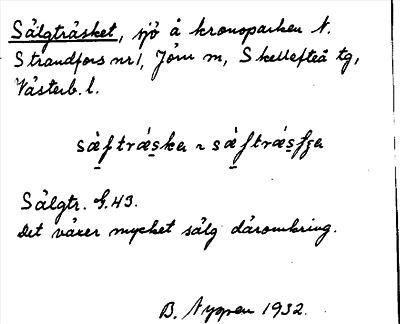 Sälgträsket, sjö å kronoparken N.
Strandfors nr 1, Jörn m, Skellefteå tg,
Västerb. l.
Sälgtr. G. 43.
Det växer mycket sälg däromkring.
B. Nygren 1932.